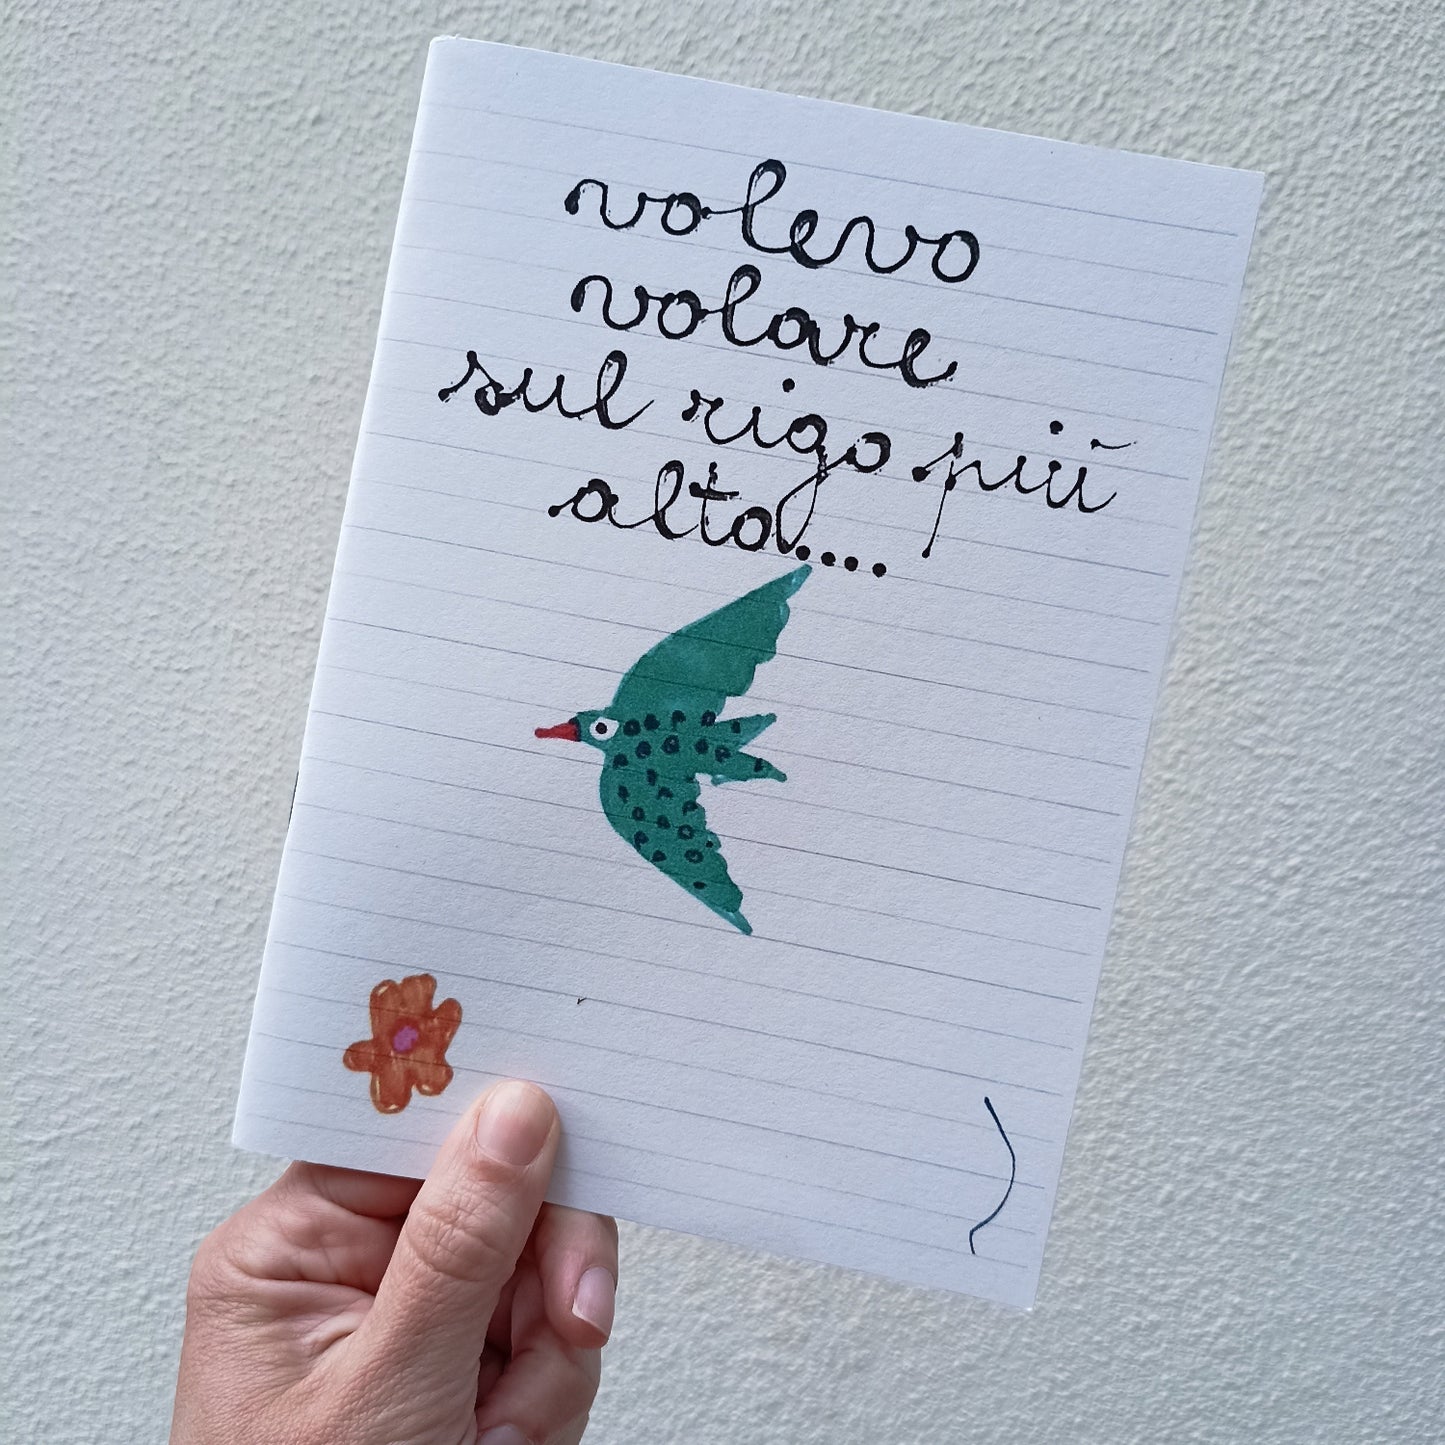 volevo
volare
sul rigo più
alto....